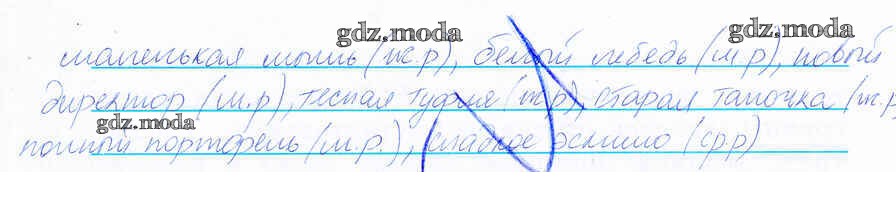 gdz.moda gdz.moda
маленькая мышь (ж.р), белый лебедь (м.р), новый
директор (м.р), тесная туфля (ж.р), старая тапочка (ж.р
gdz.moda
полный портфель (м.р.), сладкое эскимо (ср.р)